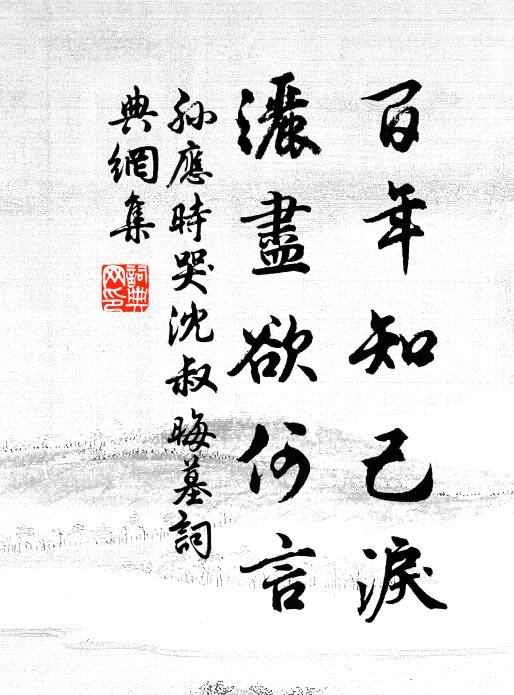 百年知己淚
灑盡欲何言
孫應時哭沈叔晦墓詞
典網集
詞典網印